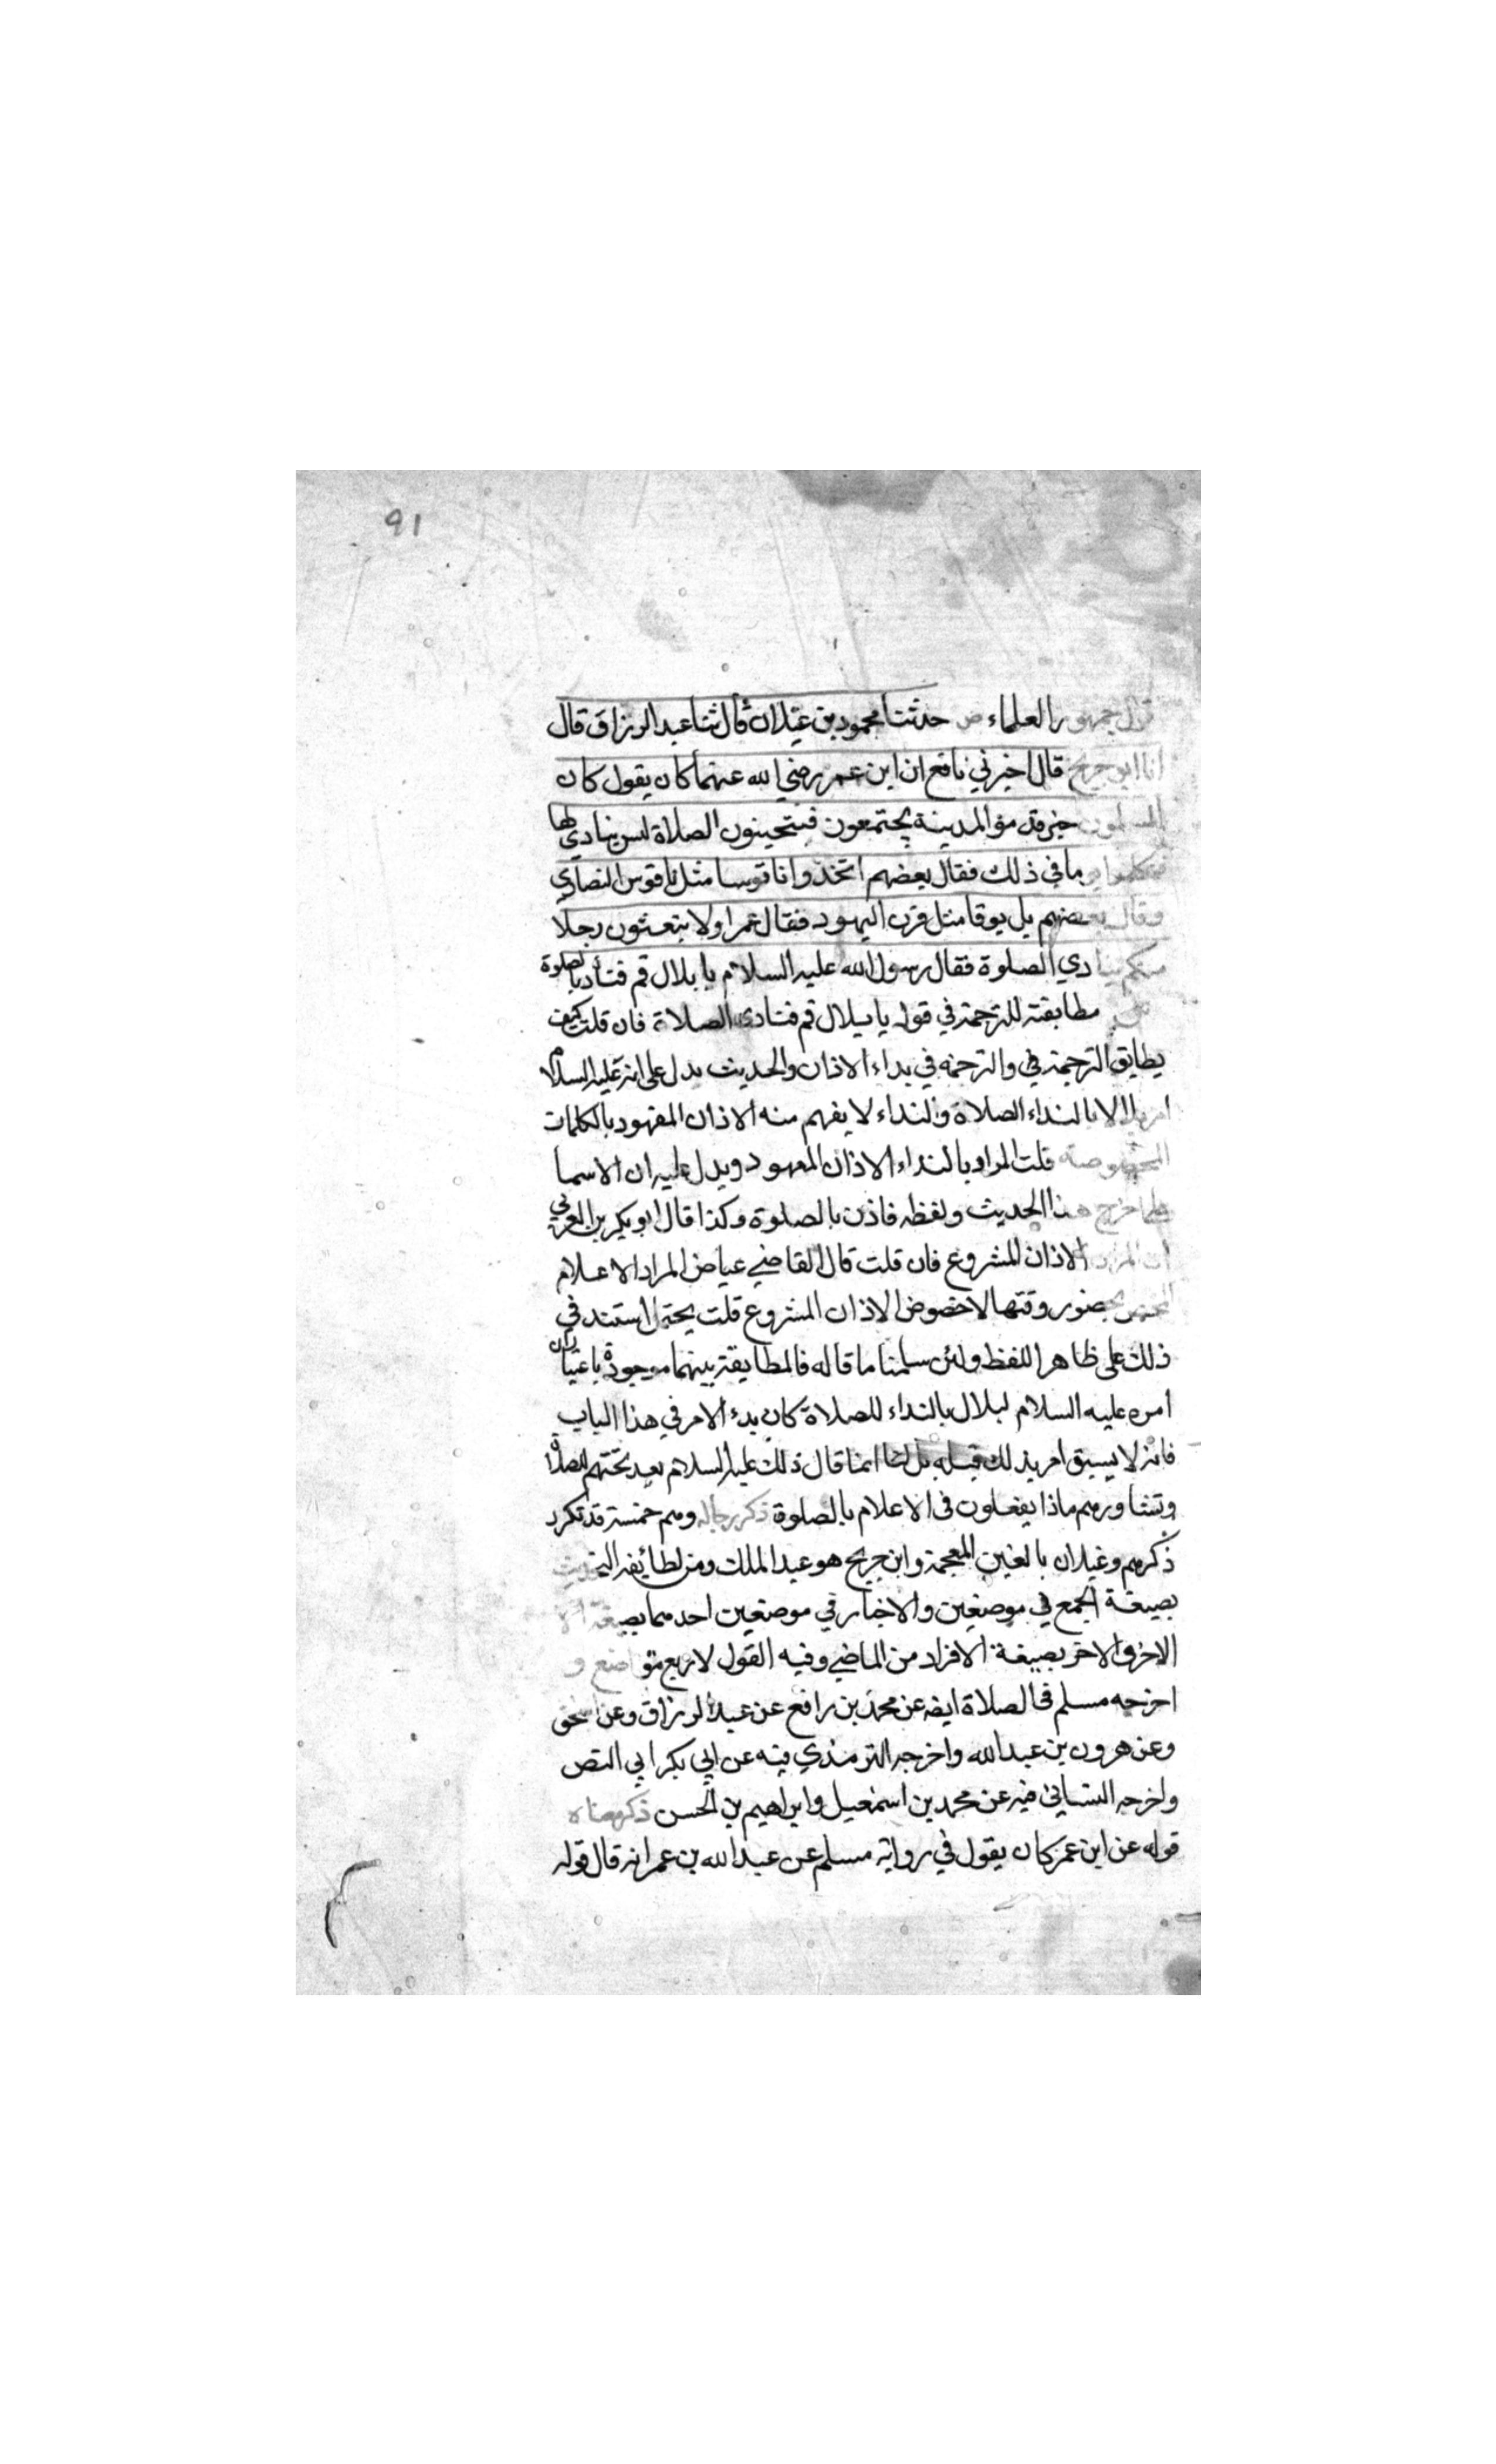 91
قول جمهور العلماء ص حدثنا محمود بن غيلان قال ثنا عبد الرزاق قال
انا ابو جريج قال اخبرني نافع ان ابن عمر رضي الله عنهما كان يقول كان
المسلمون حين قدموا المدينة يجتمعون فيتحينون الصلاة ليس ينادي لها
فتكلموا يوما في ذلك فقال بعضهم اتخذوا ناقوسا مثل ناقوس النصاري
وقال بعضهم بل بوقا مثل قرن اليهود فقال عمر اولا تبعثون رجلا
منكم ينادي الصلوة فقال رسول الله عليه السلام يا بلال قم فناد بالصلوة
ش مطابقته للترجمة في قوله يا بلال قم فنادي الصلاة فان قلت كيف
يطابق الترجمة في والترجمة في بداء الاذان والحديث يدل على انه عليه السلام
امر بلالا بالنداء الصلاة والنداء لا يفهم منه الاذان المعهود بالكلمات
المخصوصة قلت المراد بالنداء الاذان المعهود ويدل عليه ان الاسما
علما خرج هذا الحديث ولفظه فاذن بالصلوة وكذا قال ابو بكر بن العربي
ان المراد الاذان المشروع فان قلت قال القاضي عياض المراد الاعلام
المحض بحضور وقتها لا خصوص الاذان المشروع قلت يحتمل استند في
ذلك على ظاهر اللفظ ولئن سلمنا ما قاله فالمطابقة بينهما موجودة باعتبار ان
امره عليه السلام لبلال بالنداء للصلاة كان بدء الامر في هذا الباب
فانه لا يسبق امر بذلك قبله بل انما قال ذلك عليه السلام بعد تحتهم للصلاة
وتشاورهم ماذا يفعلون في الاعلام بالصلوة ذكر رجاله وهم خمسة قد تكرر
ذكرهم وغيلان بالغين المعجمة وابن جريج هو عبد الملك ومن لطائفه التحديث
بصيغة الجمع في موضعين والاخبار في موضعين احدهما بصيغة
الاخر والاخر بصيغة الافراد من الماضي وفيه القول لاربع مواضع و
اخرجه مسلم في الصلاة ايضه عن محمد بن رافع عن عبد الرزاق وعن اسحق
وعن هرون بن عبد الله واخرجه الترمذي فيه عن ابي بكر ابي النص
واخرجه النسائي فيه عن محمد بن اسمعيل وابراهيم بن الحسن ذكر معناه
قوله عن ابن عمر كان يقول في رواية مسلم عن عبد الله بن عمر انه قال قوله